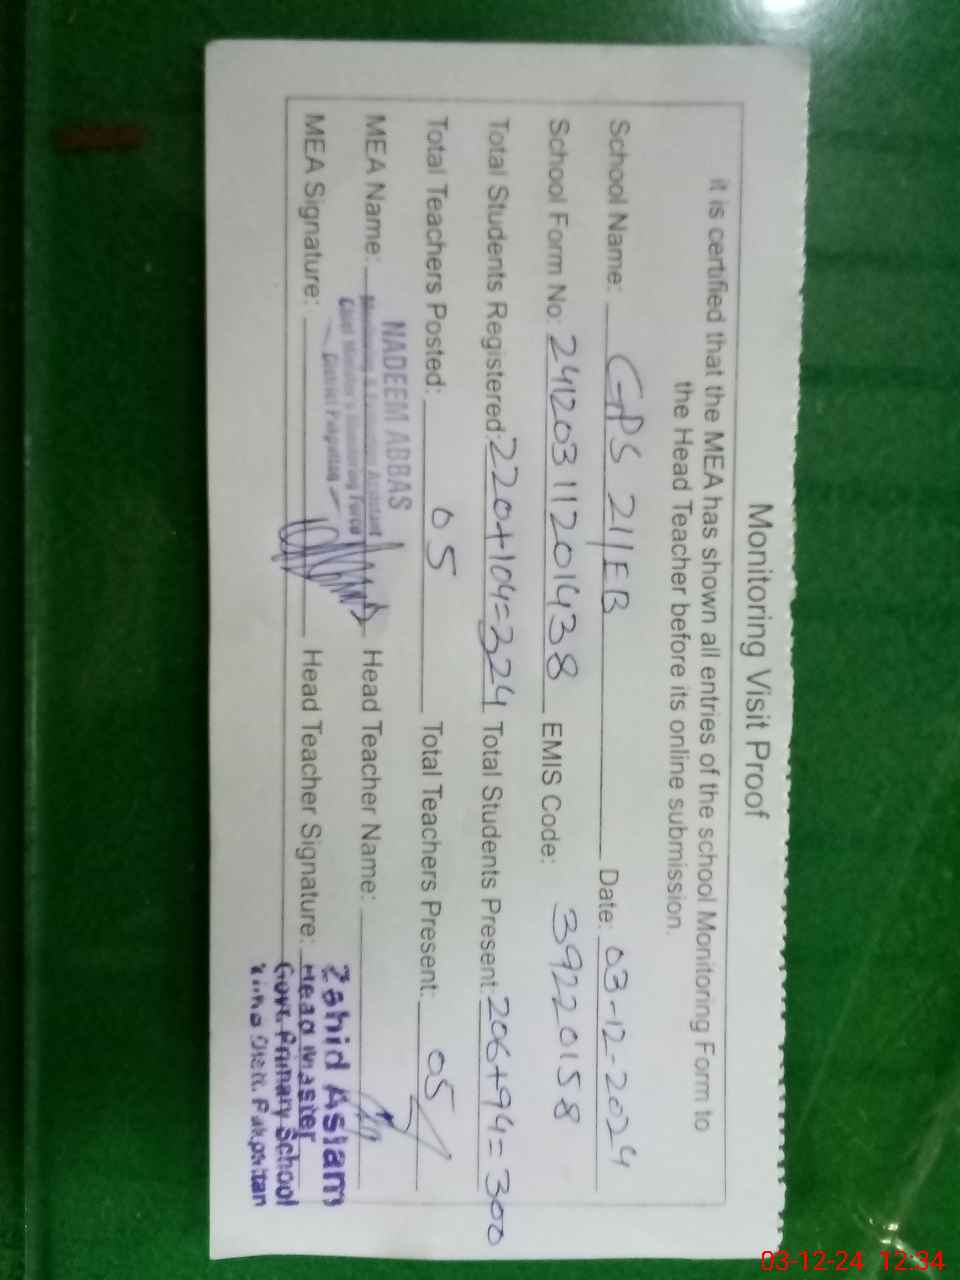 Monitoring Visit Proof
it is certified that the MEA has shown all entries of the school Monitoring Form to
the Head Teacher before its online submission.
School Name: GPS 21/EB Date: 03-12-2024
School Form No: 24120311201438 EMIS Code: 39220158
Total Students Registered: 220+104=324 Total Students Present: 206+94=300
Total Teachers Posted: 05 Total Teachers Present: 05
NADEEM ABBAS
MEA Name: Monitoring & Evaluation Assistant Head Teacher Name:
Chief Minister's Monitoring Force
District Pakpattan
Zahid Aslam
MEA Signature: Head Teacher Signature: Head Master
Govt. Primary School
Distt. Pakpattan
03-12-24 12:34